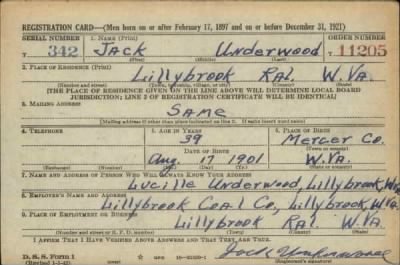 REGISTRATION CARD—(Men born on or after February 17, 1897 and on or before December 31, 1921)
SERIAL NUMBER 1. NAME (Print) ORDER NUMBER
T 342 Jack Underwood T 11205
(First) (Middle) (Last)
2. PLACE OF RESIDENCE (Print)
Lillybrook Ral. W.Va.
(Number and street) (Town, township, village, or city) (County) (State)
[THE PLACE OF RESIDENCE GIVEN ON THE LINE ABOVE WILL DETERMINE LOCAL BOARD
JURISDICTION; LINE 2 OF REGISTRATION CERTIFICATE WILL BE IDENTICAL]
3. MAILING ADDRESS
Same
[Mailing address if other than place indicated on line 2. If same insert word same]
4. TELEPHONE 5. AGE IN YEARS 6. PLACE OF BIRTH
39 Mercer Co.
DATE OF BIRTH (Town or county)
Aug. 17 1901 W.Va.
(Exchange) (Number) (Mo.) (Day) (Yr.) (State or country)
7. NAME AND ADDRESS OF PERSON WHO WILL ALWAYS KNOW YOUR ADDRESS
Lucille Underwood, Lillybrook, W.Va.
8. EMPLOYER'S NAME AND ADDRESS
Lillybrook Coal Co, Lillybrook, W.Va.
9. PLACE OF EMPLOYMENT OR BUSINESS
Lillybrook Ral. W.Va.
(Number and street or R. F. D. number) (Town) (County) (State)
I AFFIRM THAT I HAVE VERIFIED ABOVE ANSWERS AND THAT THEY ARE TRUE.
D. S. S. Form 1
Jack Underwood